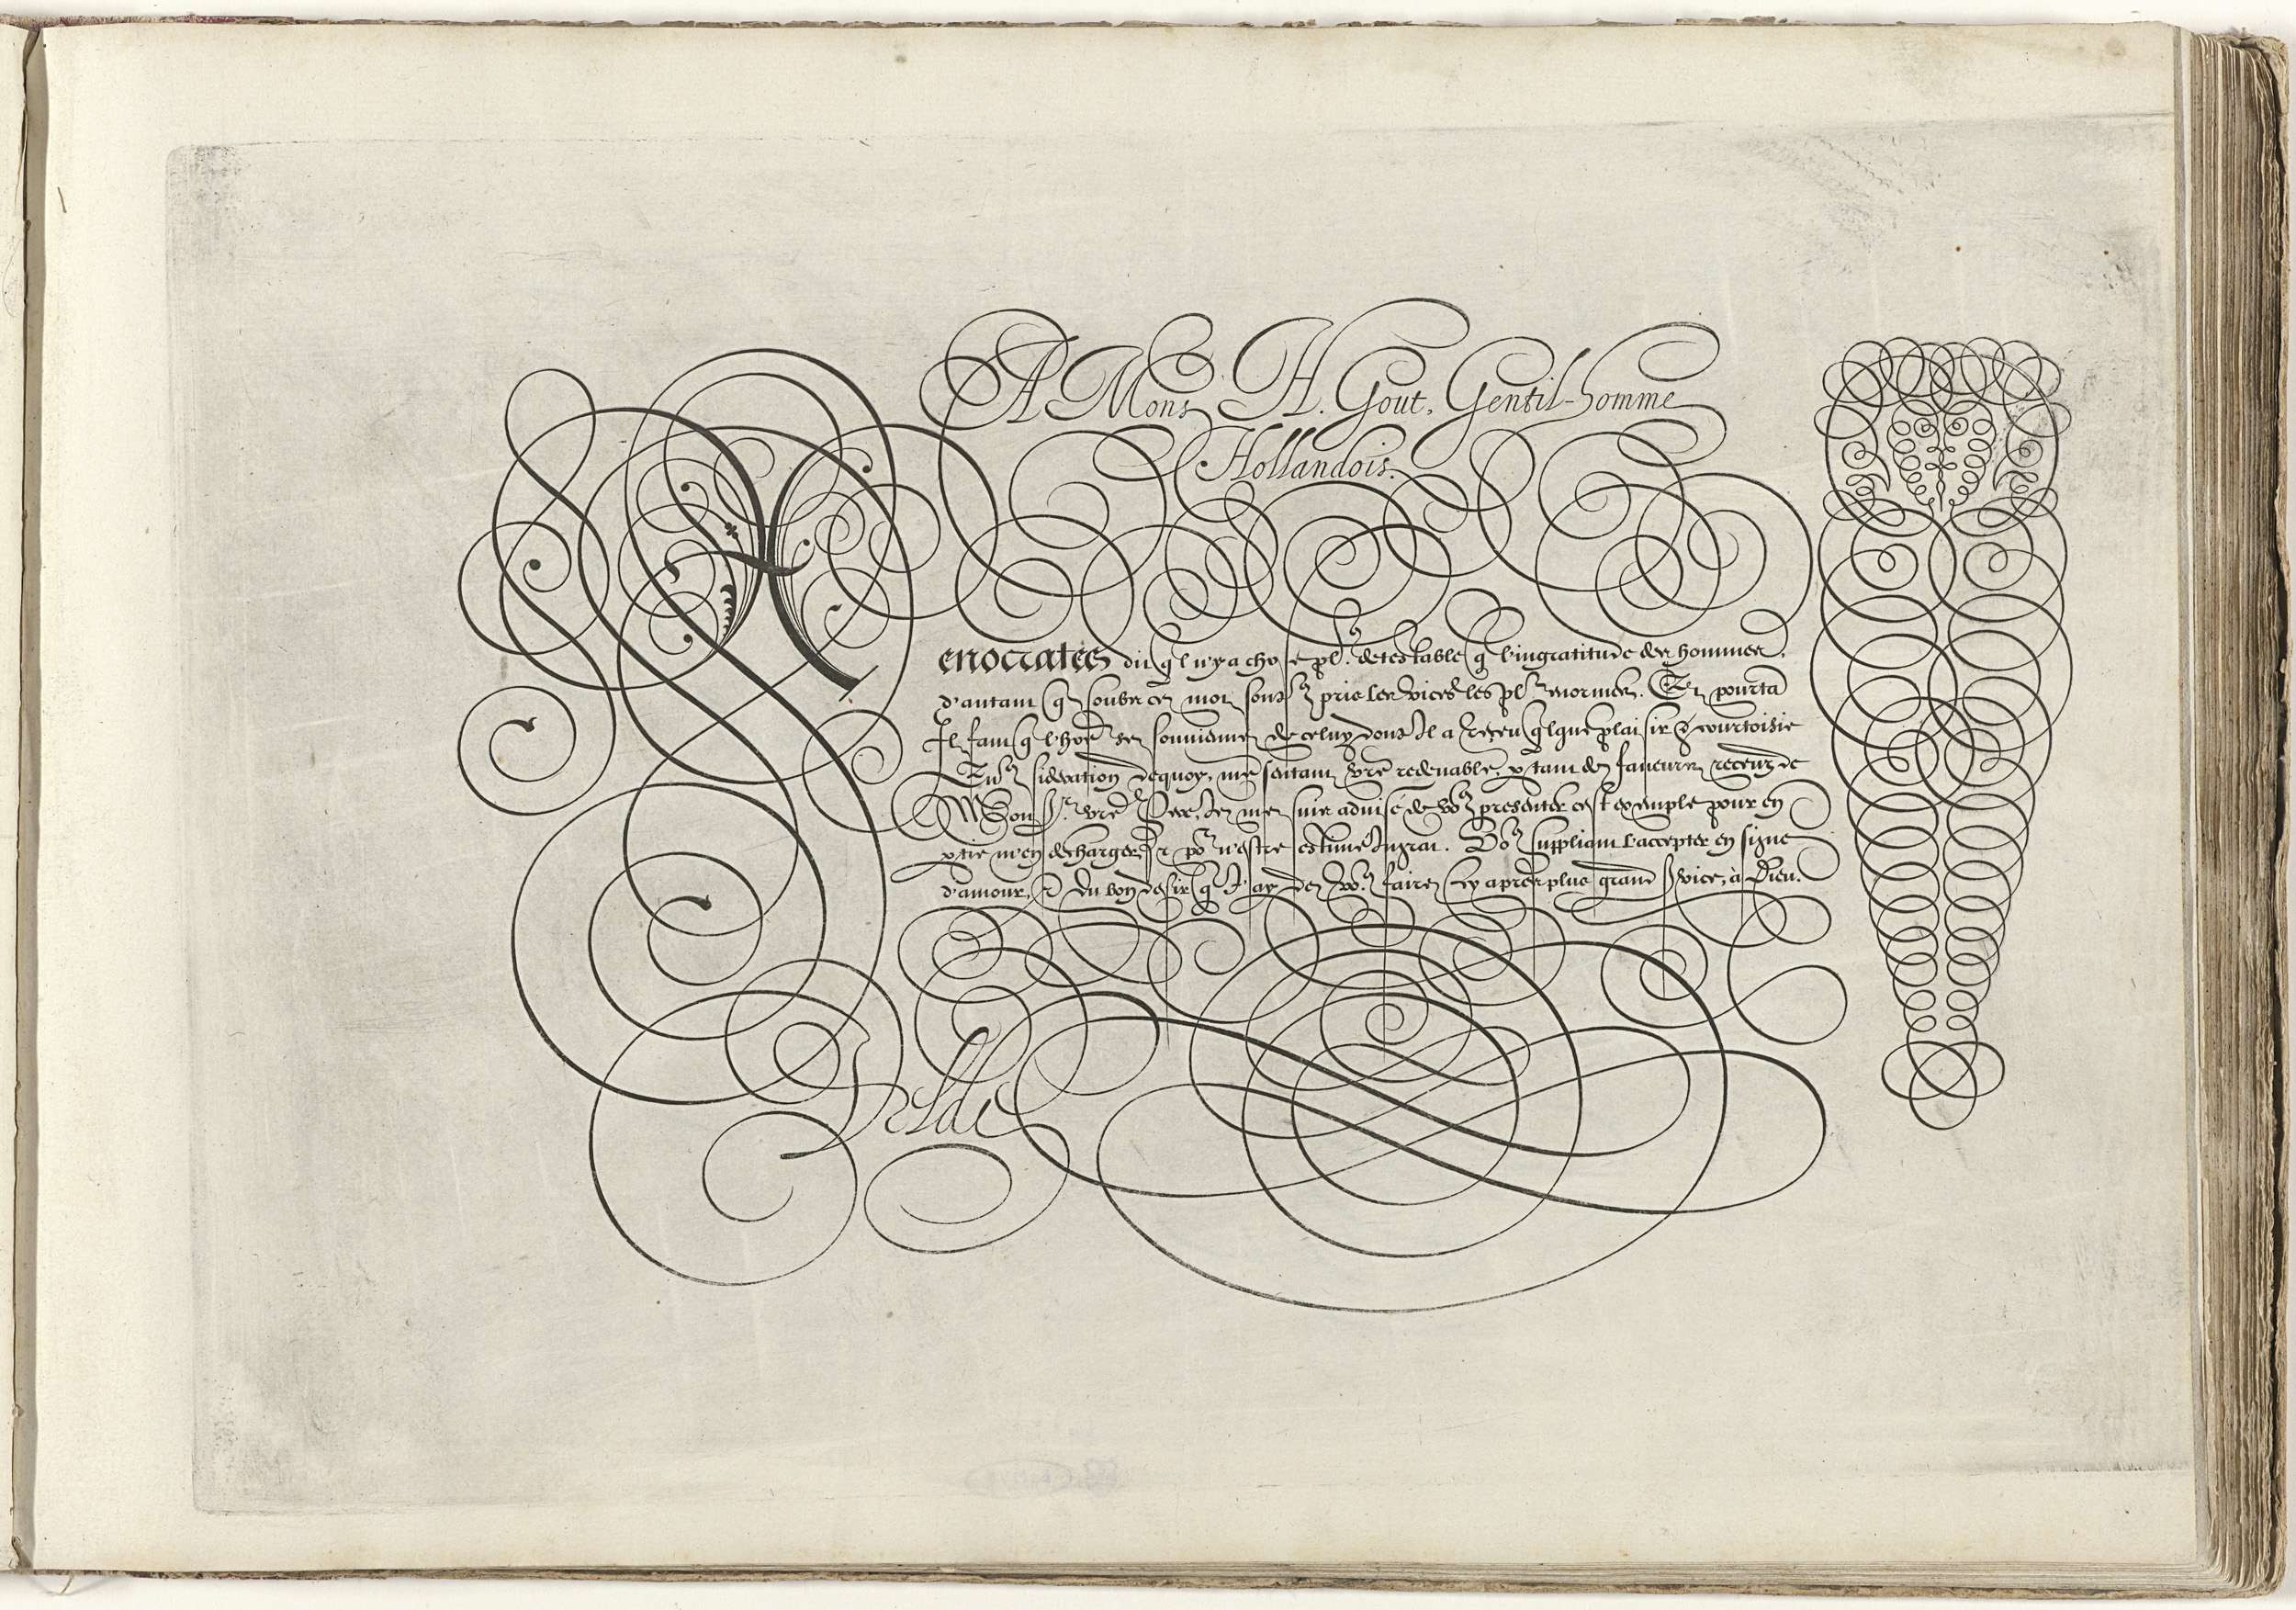 A Mons H. Gout, Gentil-homme
Hollandois.
Xenocrates dit q̃ l n'y a chose pl⁹. detestable q̃ l'ingratitude des hommes,
d'autant q̃ soubz ce mot sont pris les vices les pl⁹ enormes. Et pourtã
Il faut q̃ l'hõe se souvienne de celuy dont Il a receu q̃lque plaisir & courtoisie
sideration dequoy, me sentant vr̃e redevable, p tant de faveurs receuz de
Mons.r vr̃e Pere, Je me suis advisé de vo⁹ presenter cest exemple pour en
ptie m'en descharger, & po.r n'estre estimé Ingrat. Vo⁹ suppliant l'accepter en signe
d'amour, & du bon desir q̃ J'ay de vo⁹ faire cy apres plus grand service, à Dieu.
Velde